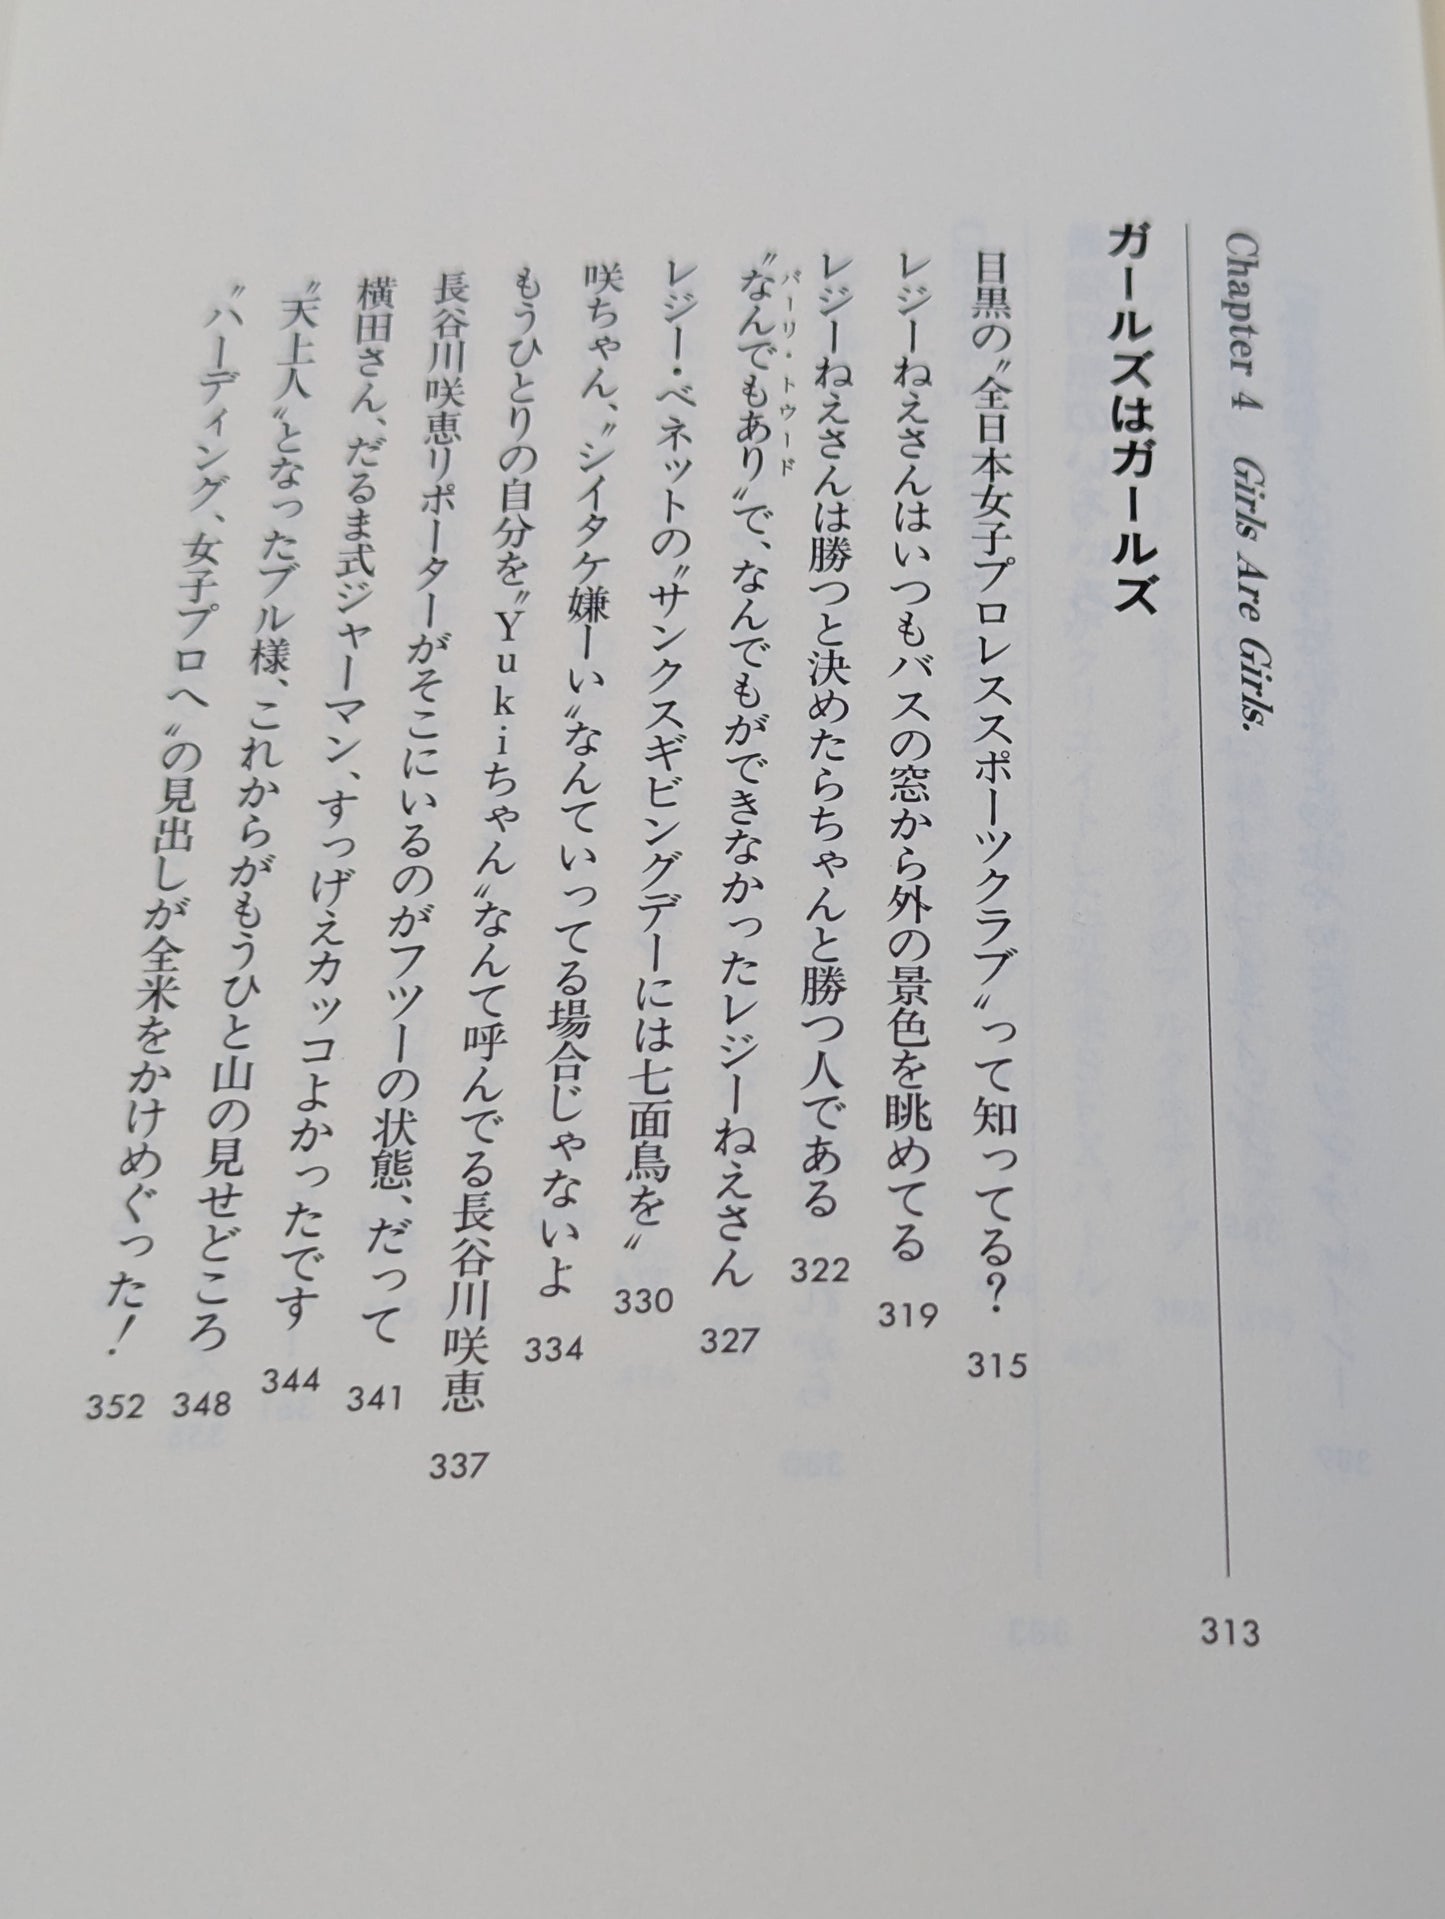 Chapter 4 Girls Are Girls. 313
ガールズはガールズ
目黒の〝全日本女子プロレススポーツクラブ〟って知ってる? 315
レジーねえさんはいつもバスの窓から外の景色を眺めてる 319
レジーねえさんは勝つと決めたらちゃんと勝つ人である 322
バーリ・トゥード
〝なんでもあり〟で、なんでもができなかったレジーねえさん 327
レジー・ベネットの〝サンクスギビングデーには七面鳥を〟 330
咲ちゃん、〝シイタケ嫌ーい〟なんていってる場合じゃないよ 334
もうひとりの自分を〝Yukiちゃん〟なんて呼んでる長谷川咲恵 337
長谷川咲恵リポーターがそこにいるのがフツーの状態、だって 341
横田さん、だるま式ジャーマン、すっげえカッコよかったです 344
〝天上人〟となったブル様、これからがもうひと山の見せどころ 348
〝ハーディング、女子プロへ〟の見出しが全米をかけめぐった! 352